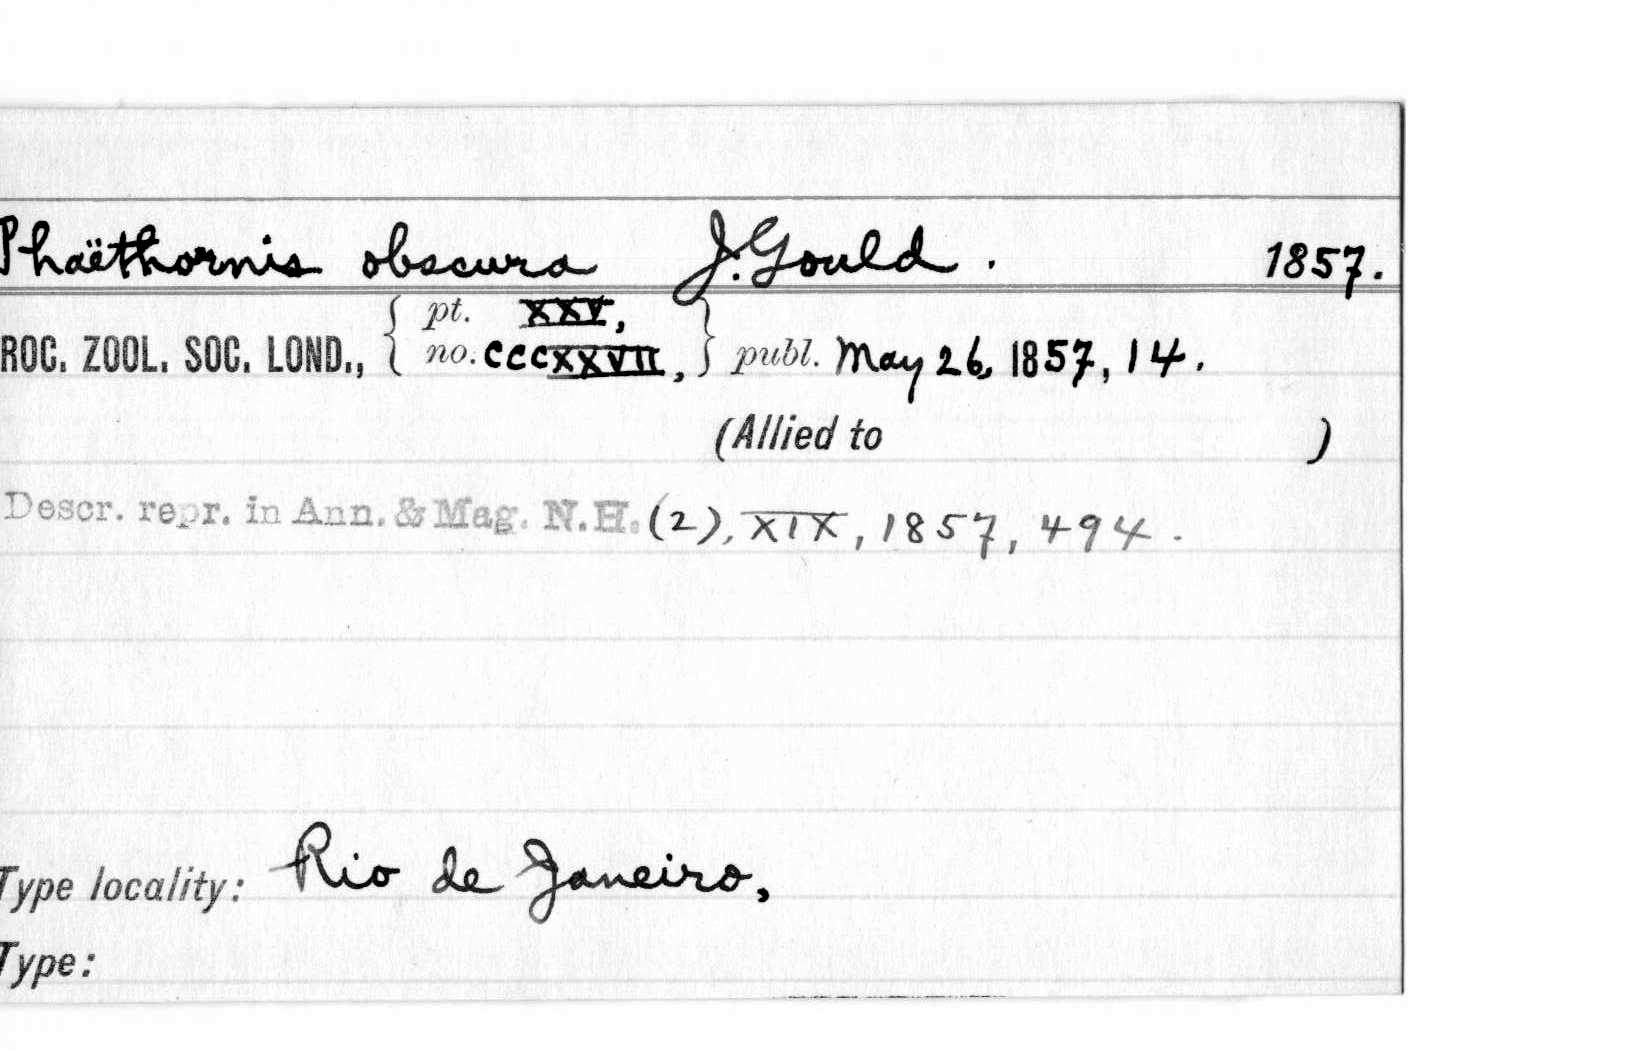 Phaëthornis obscura J. Gould. 1857.
ROC. ZOOL. SOC. LOND., { pt. XXV, no. CCCXXVII, } publ. May 26, 1857, 14.
(Allied to )
Descr. repr. in Ann. & Mag. N.H. (2), XIX, 1857, 494.
Type locality: Rio de Janeiro,
Type: